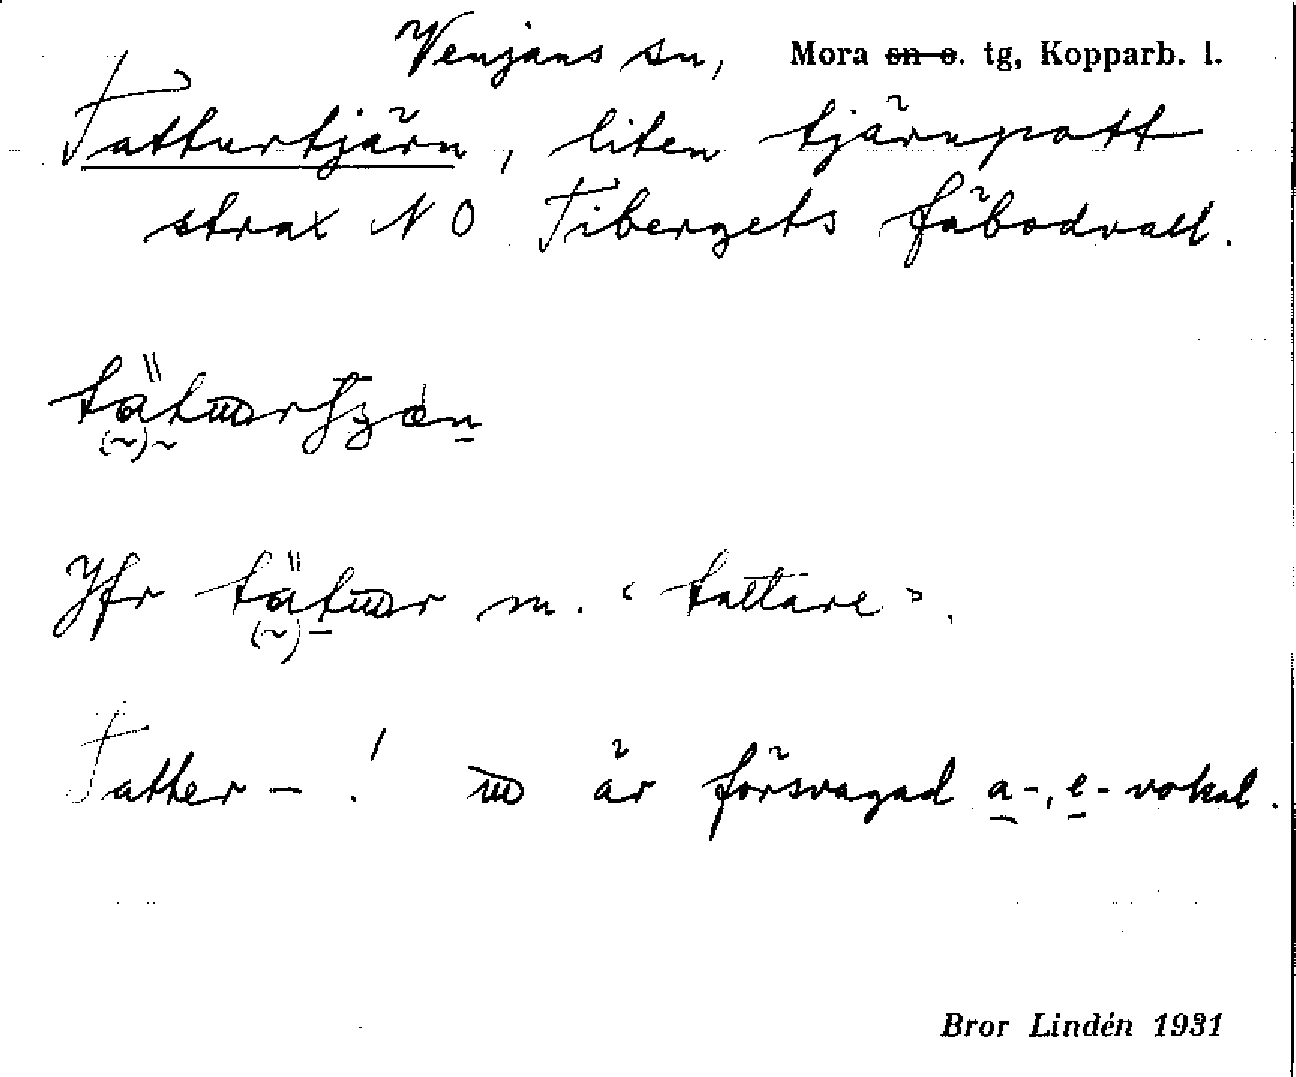 Venjans sn, Mora sn o. tg, Kopparb. l.
Tatturtjärn, liten tjärnpott
strax NO Tibergets fäbodvall.
Jfr m. "tattare".
Tatter-! är försvagad a-, e-vokal.
Bror Lindén 1931